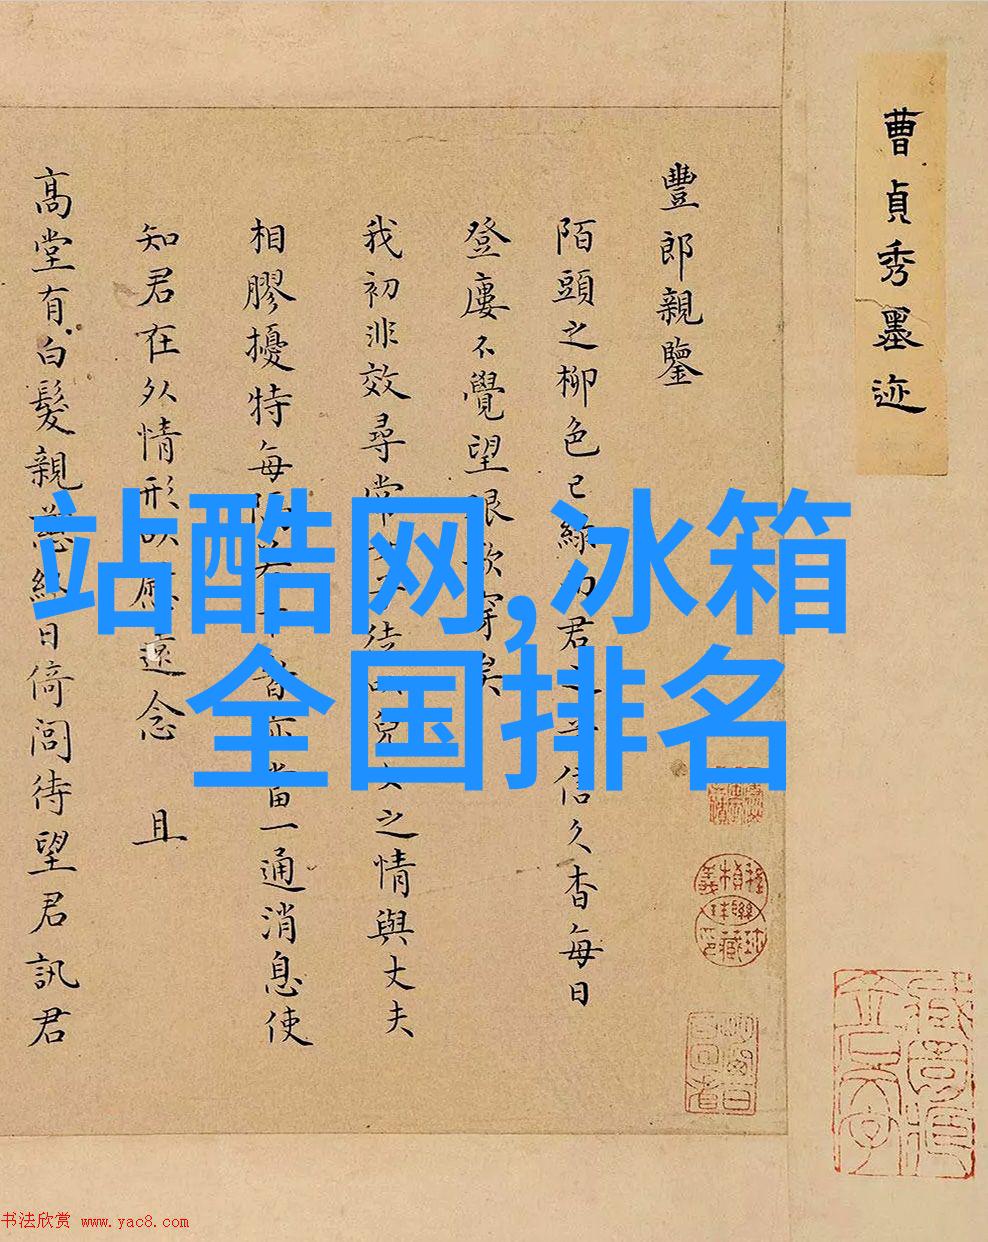 曹貞秀墨迹
豐郎親鑒
陌頭之柳色已綠而君之平信久杳每日
登廔不覺望眼欲穿矣
我初非效尋常女子徒以兒女之情與丈夫
相膠擾特每隔
者亦當一通消息使
知君在外情形以慰遠念 且
髙堂有白髮親慈終日倚閭待望君訊君
站酷网,冰箱
全国排名
书法欣赏 www.yac8.com